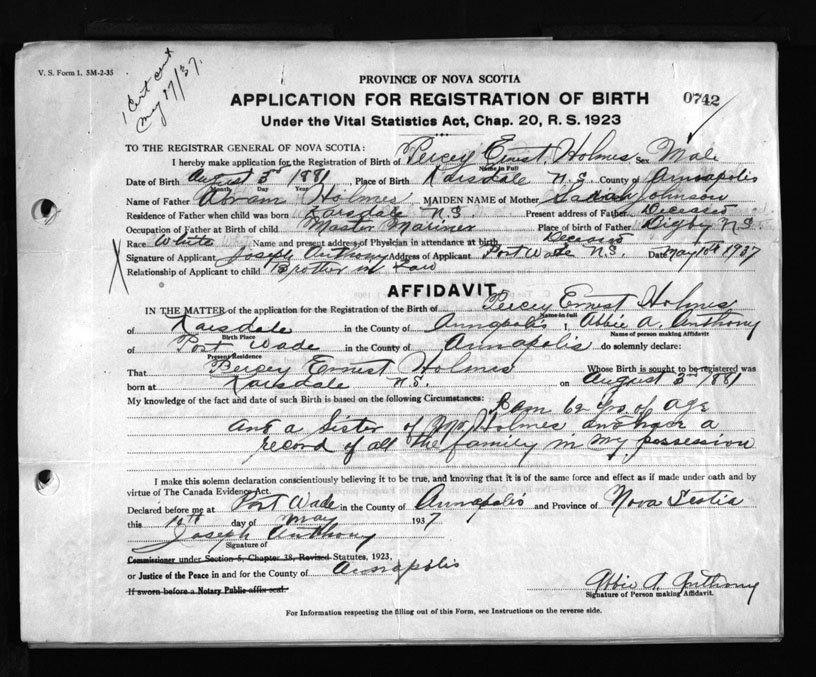 V. S. Form 1. 5M-2-35
1 Cert sent
May 17/37.
PROVINCE OF NOVA SCOTIA
APPLICATION FOR REGISTRATION OF BIRTH
0742
Under the Vital Statistics Act, Chap. 20, R. S. 1923
TO THE REGISTRAR GENERAL OF NOVA SCOTIA:
I hereby make application for the Registration of Birth of Percey Ernest Holmes Sex Male
Name in Full
Date of Birth August 3rd 1881 Place of Birth Karsdale N.S. County of Annapolis
Month Day Year
Name of Father Abram Holmes MAIDEN NAME of Mother Johnson
Residence of Father when child was born Karsdale N.S. Present address of Father Deceised
Occupation of Father at Birth of child Master Mariner Place of birth of Father Digby N.S.
Race White Name and present address of Physician in attendance at birth Deceised
Signature of Applicant Joseph Anthony Address of Applicant Port Wade N.S. Date May 10th 1937
Relationship of Applicant to child Brother in Law
AFFIDAVIT
IN THE MATTER of the application for the Registration of Birth of Percey Ernest Holmes
Name in full
of Karsdale in the County of Annapolis I, Abbie A. Anthony
Birth Place Name of person making Affidavit
of Port Wade in the County of Annapolis do solemnly declare:
Present Residence
That Percey Ernest Holmes Whose Birth is sought to be registered was
born at Karsdale N.S. on August 3rd 1881
My knowledge of the fact and date of such Birth is based on the following Circumstances: I am 62 yrs of age
and a Sister of Mr Holmes and have a
record of all the family in my possession
I make this solemn declaration conscientiously believing it to be true, and knowing that it is of the same force and effect as if made under oath and by
virtue of The Canada Evidence Act.
Declared before me at Port Wade in the County of Annapolis and Province of Nova Scotia
this 10th day of May 1937
Joseph Anthony
Signature of
Commissioner under Section 5, Chapter 38, Revised Statutes, 1923,
or Justice of the Peace in and for the County of Annapolis
If sworn before a Notary Public affix seal.
Abbie A. Anthony
Signature of Person making Affidavit.
For Information respecting the filling out of this Form, see Instructions on the reverse side.